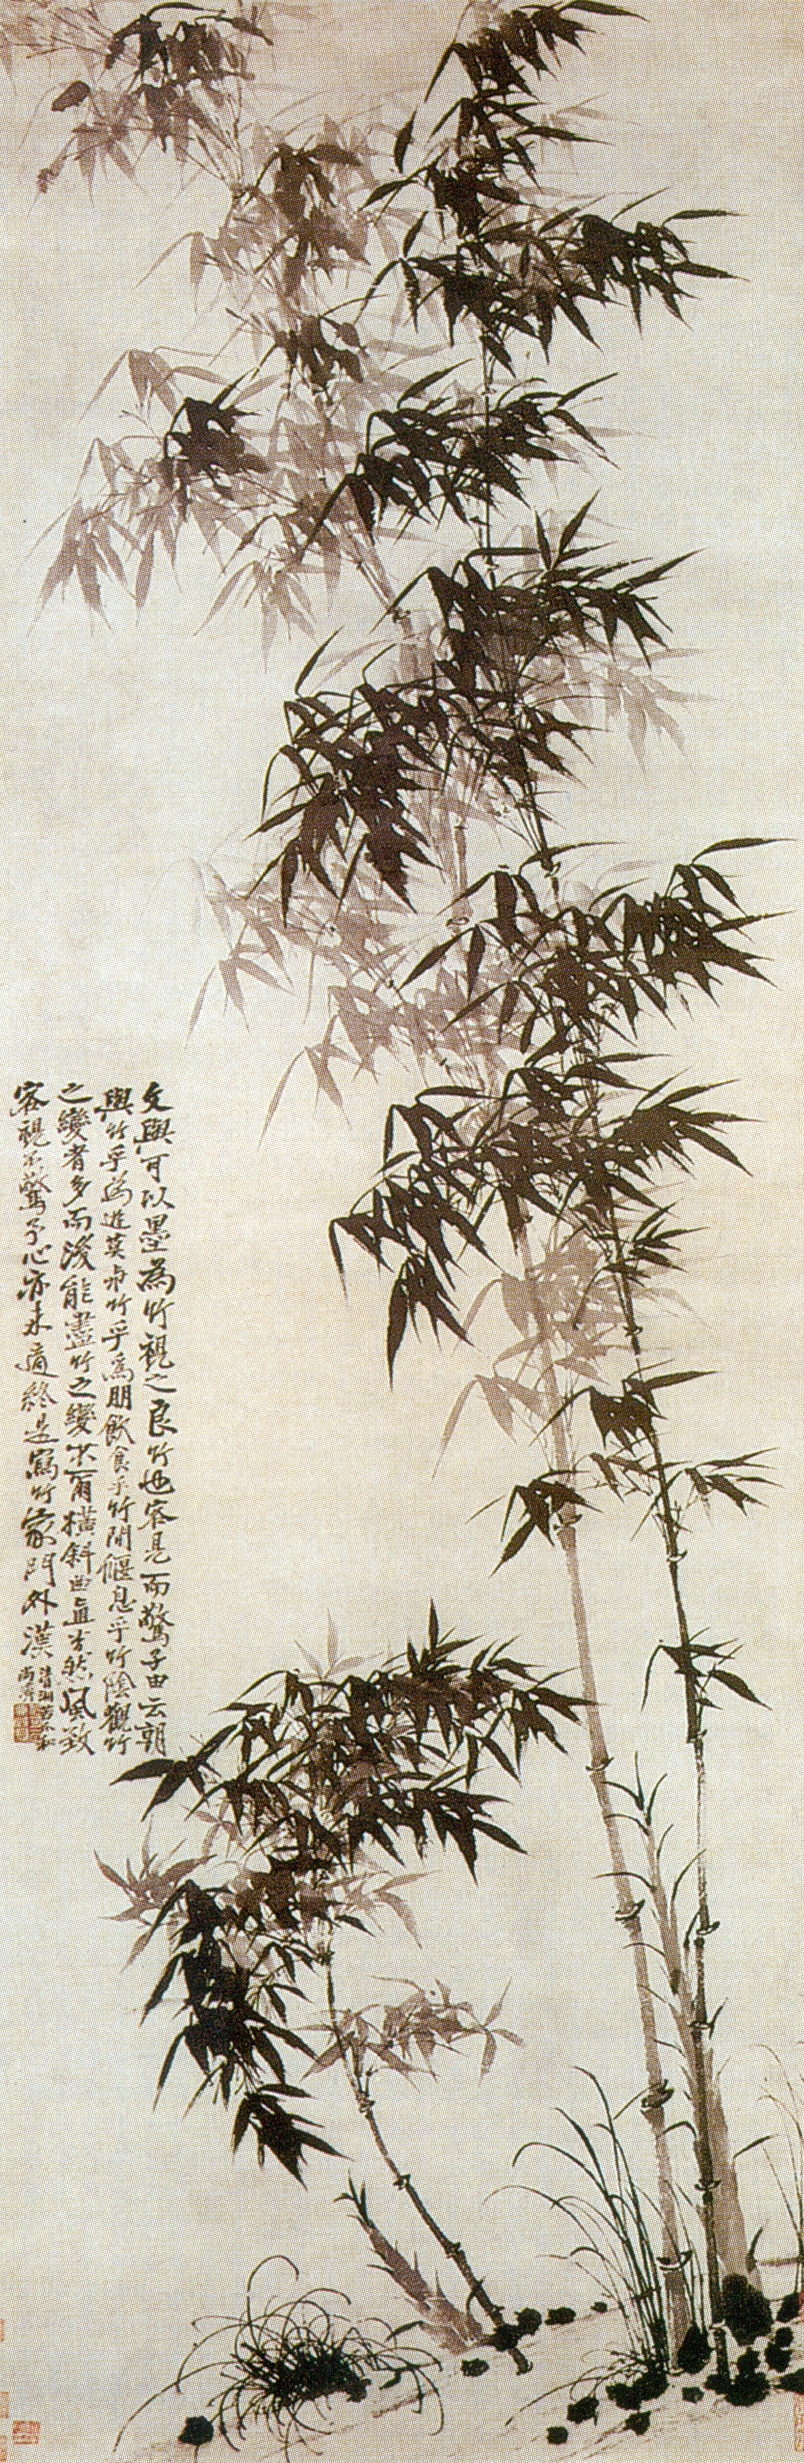 文與可以墨為竹視之良竹也客見而驚子由云朝
與竹乎為遊莫與竹乎為朋飲食乎竹間偃息乎竹陰觀竹
之變者多而後能盡竹之變爾橫斜曲直然風致
客視不驚予心亦未適終是寫竹家門外漢
清湘苦瓜和
尚濟